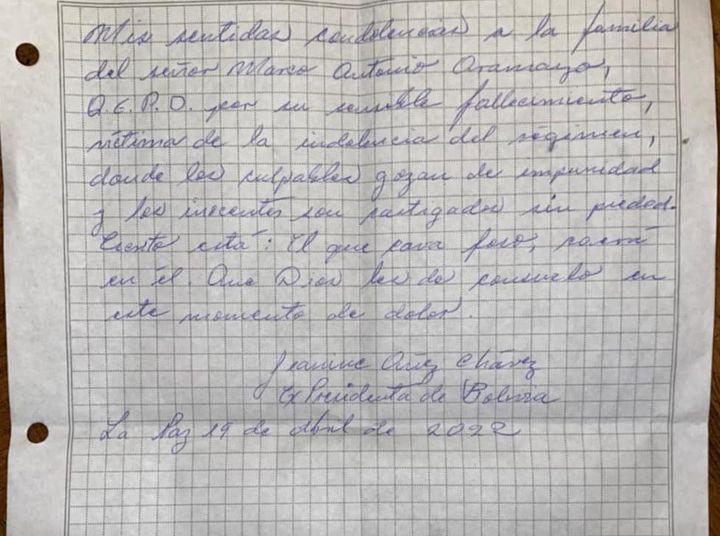 Mis sentidas condolencias a la familia
del señor Marco Antonio Aramayo,
Q.E.P.D. por su sensible fallecimiento,
víctima de la indolencia del régimen,
donde los culpables gozan de impunidad
y los inocentes son castigados sin piedad.
Escrito está: El que cava foso, caerá
en él. Que Dios les de consuelo en
este momento de dolor.
Jeanine Añez Chávez
Ex Presidenta de Bolivia
La Paz 19 de abril de 2022